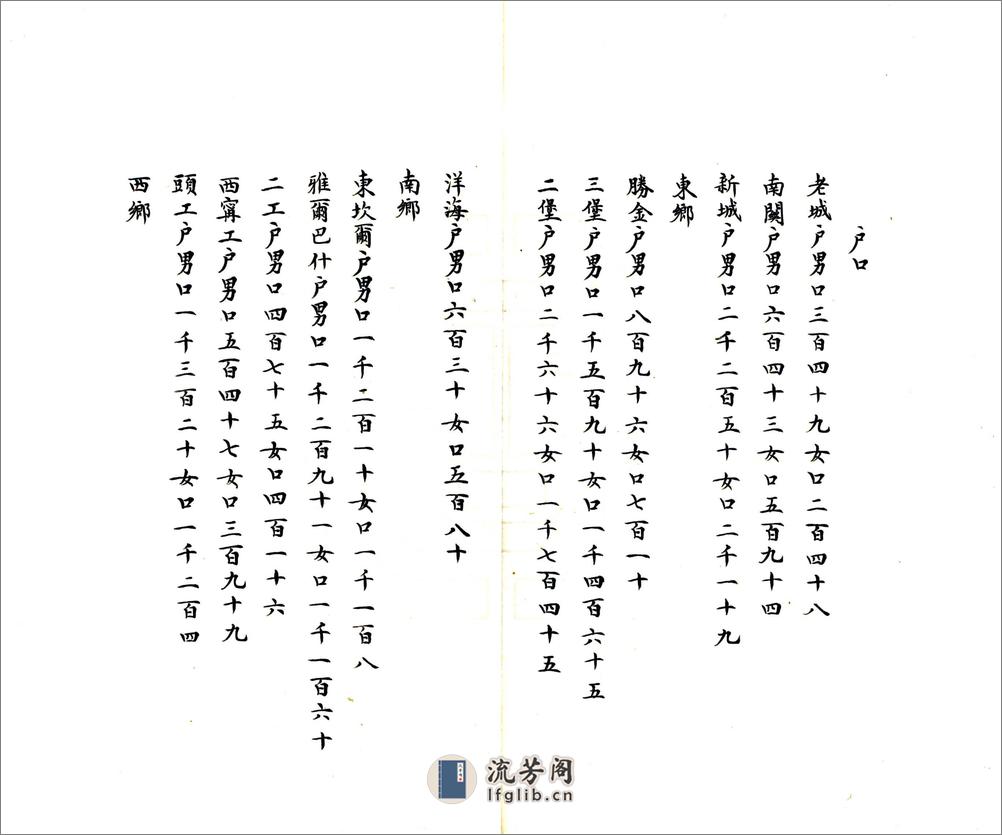 户口
老城户男口三百四十九女口二百四十八
南關户男口六百四十三女口五百九十四
新城户男口二千二百五十女口二千一十九
東鄉
勝金户男口八百九十六女口七百一十
三堡户男口一千五百九十女口一千四百六十五
二堡户男口二千六十六女口一千七百四十五
洋海户男口六百三十女口五百八十
南鄉
東坎爾户男口一千二百一十女口一千一百八
雅爾巴什户男口一千二百九十一女口一千一百六十
二工户男口四百七十五女口四百一十六
西寗工户男口五百四十七女口三百九十九
頭工户男口一千三百二十女口一千二百四
西鄉
流芳阁
lfglib.cn